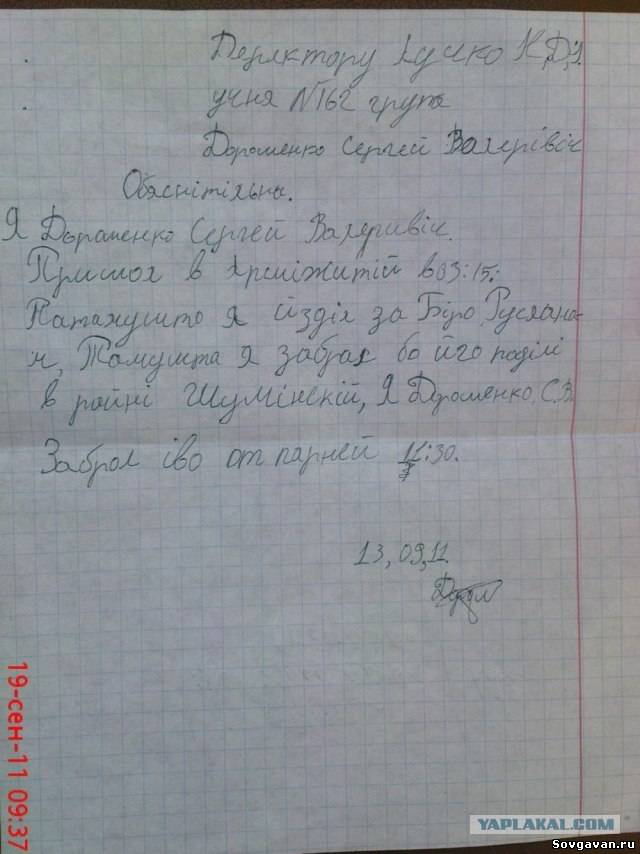 Деректору Ідчко К,Д,І
учня №162 група
Дороменко Сергей Валерівіч
Обяснітільна.
Я Дороменко Сергей Валеривіч.
Пришол в в03:15:
Патамушто я йздія за Біро, Руслана-
м, Тамушта я забрал бо його поділі
в районі Шумінскій, Я Дороменко. С.В.
Заброл іво от парней :30.
13,09,11.
19-сен-11 09:37
YAPLAKAL.COM
Sovgavan.ru